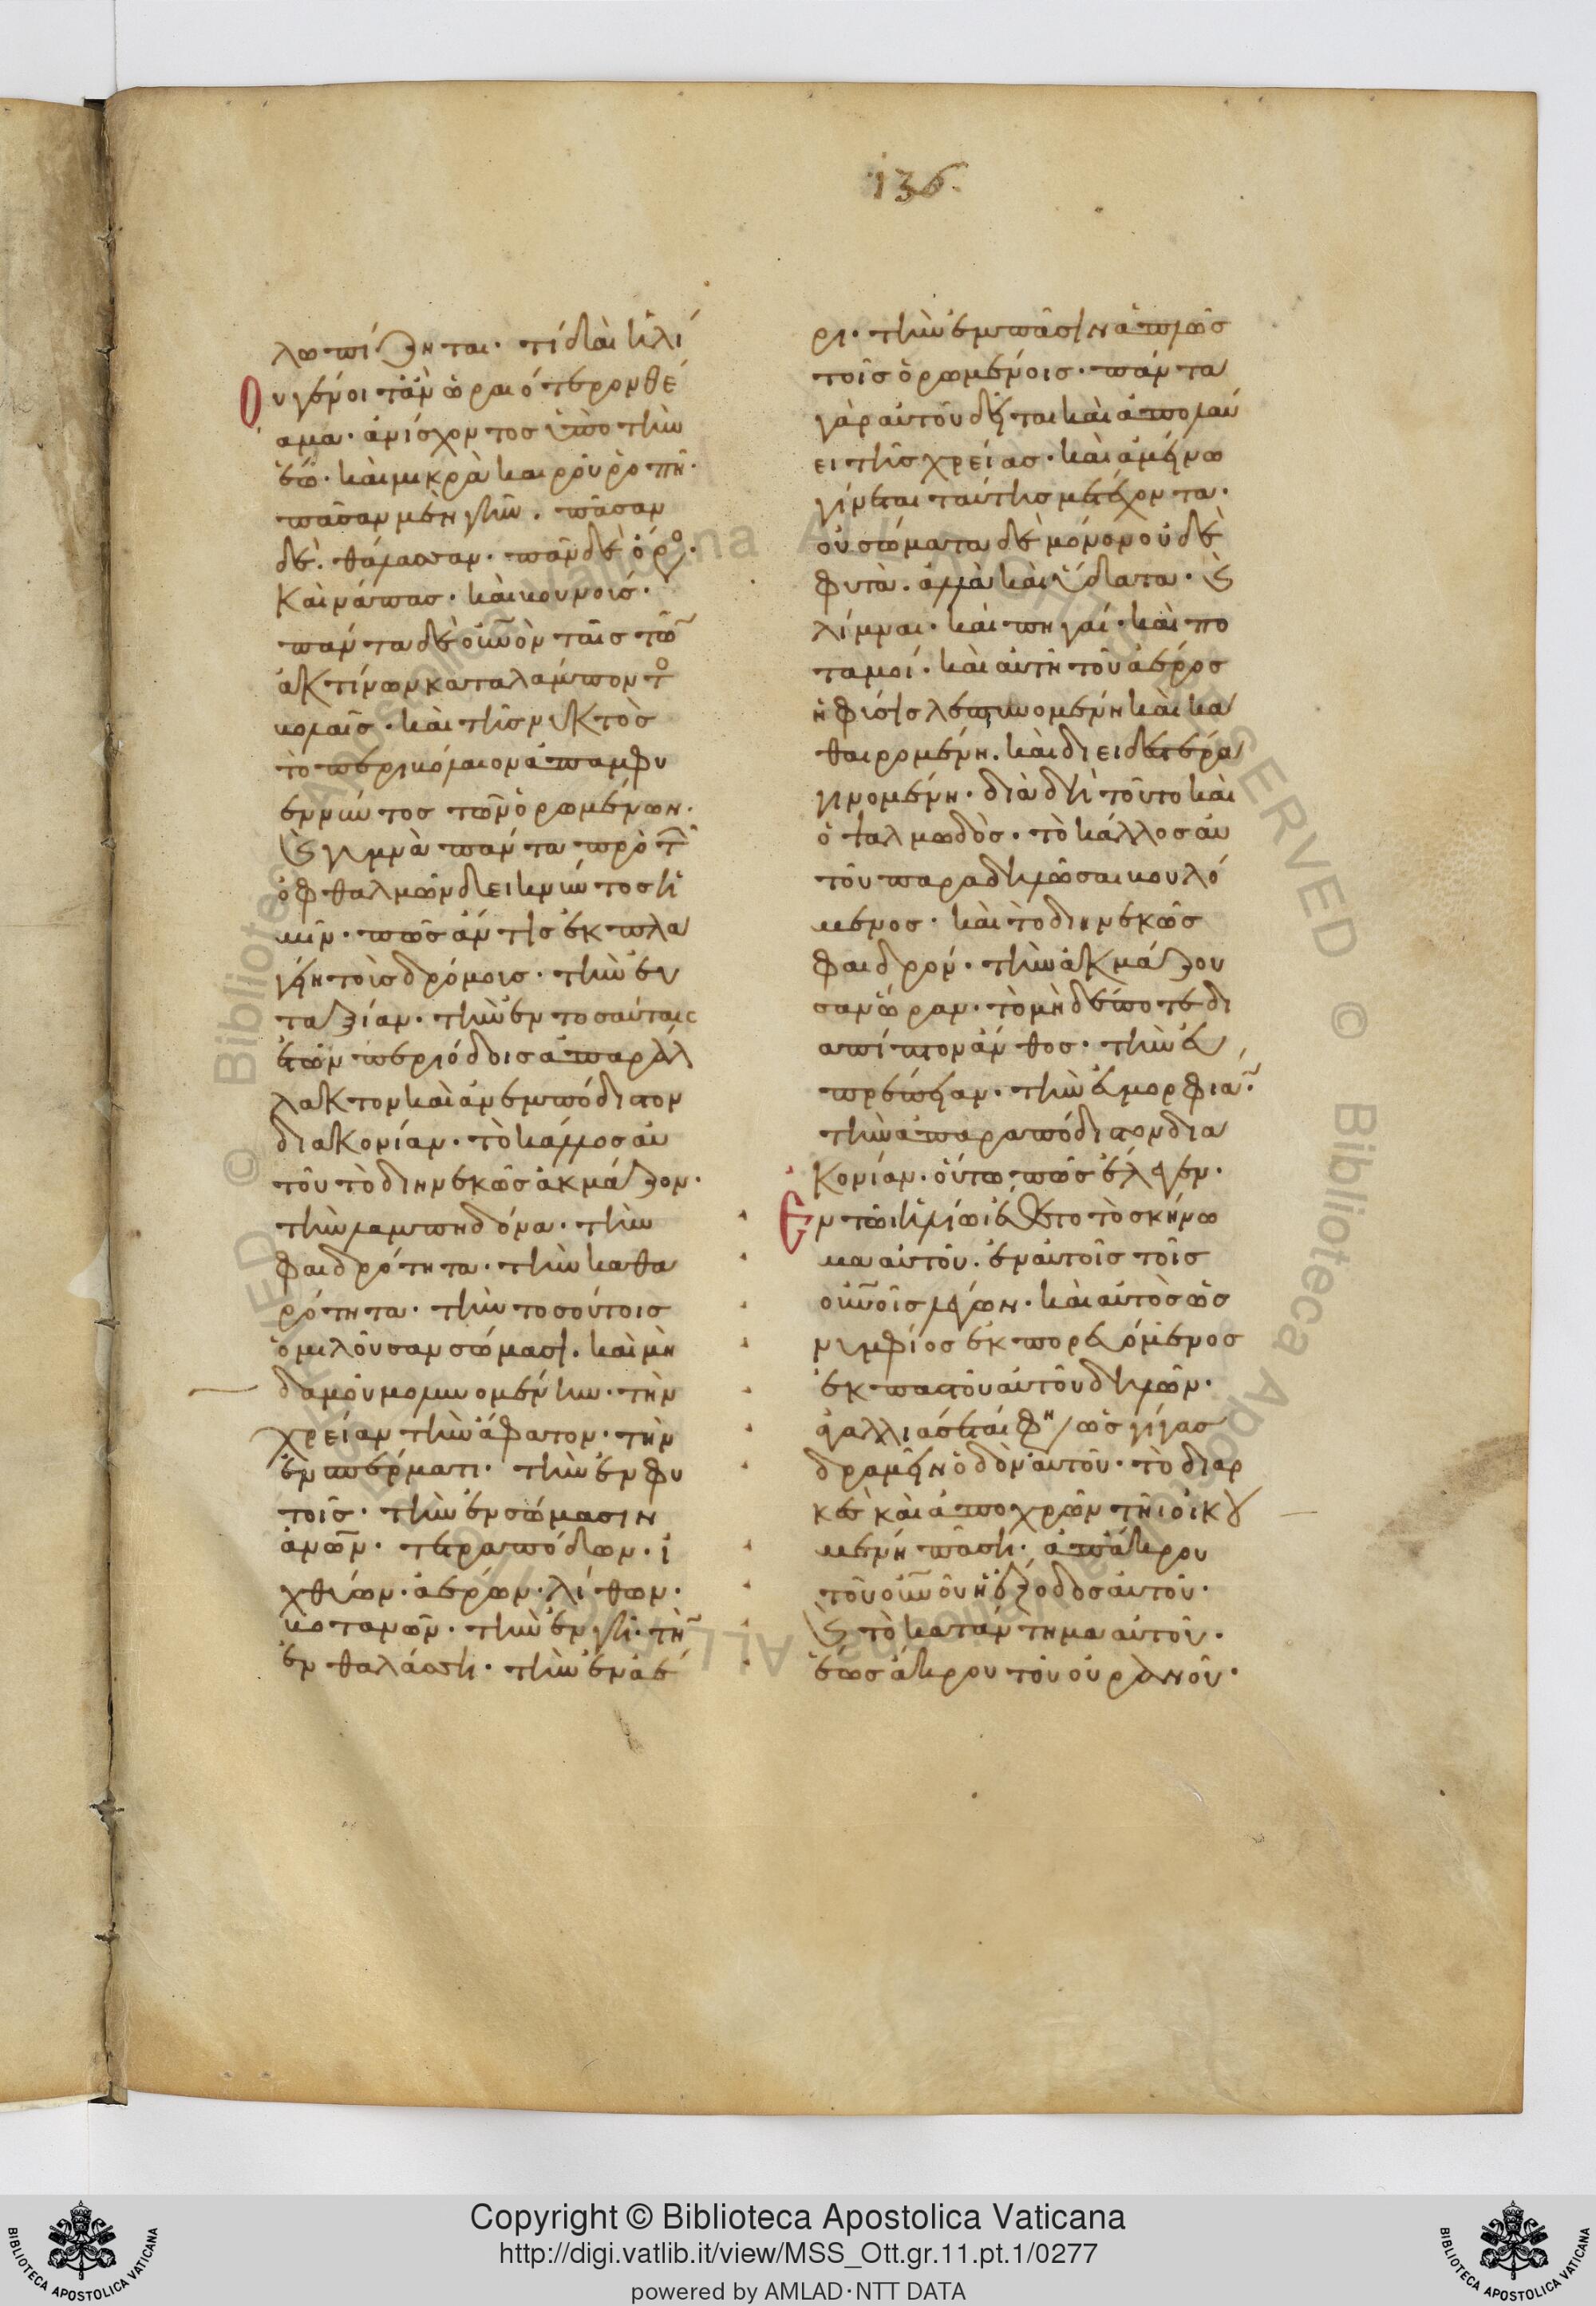 136.
λωπίζηται· τί δαὶ ἡλί
ου γένοιτ' ἂν ὡραιότερον θέ
αμα· ἀνίσχοντος ὑπὸ τὴν
ἕω· καὶ μικρᾷ καιροῦ ῥοπῇ·
πᾶσαν μὲν γῆν· πᾶσαν
δὲ θάλασσαν· πᾶν δὲ ὄρος·
καὶ νάπας· καὶ βουνοὺς·
πάντα δὲ οὐνὸν ταῖς τῶν
ἀκτίνων καταλάμποντος
βολαῖς· καὶ τῆς νυκτὸς
τὸ περιβόλαιον ἀπαμφι
εννύντος τῶν ὁρωμένων·
καὶ γυμνὰ πάντα πρὸ τῶν
ὀφθαλμῶν δεικνύντος ἡ
μῖν· πῶς ἄν τις ἐκπλα
γείη τοὺς δρόμους· τὴν εὐ
ταξίαν· τὴν ἐν τοσαύταις
ἐτῶν περιόδοις ἀπαράλ
λακτον καὶ ἀνεμπόδιστον
διακονίαν· τὸ κάλλος αὐ
τοῦ τὸ διηνεκῶς ἀκμάζον·
τὴν λαμπηδόνα· τὴν
φαιδρότητα· τὴν καθα
ρότητα· τὴν τοσούτοις
ὁμιλοῦσαν σώμασι· καὶ μη
δαμοῦ μολυνομένην· τὴν
χρείαν τὴν ἄφατον· τὴν
ἐν σπέρματι· τὴν ἐν φυ
τοῖς· τὴν ἐν σώμασιν
ἀνῶν· τετραπόδων· ἰ
χθύων· ἀέρων· λίθων·
βοτανῶν· τὴν ἐν γῆ· τὴν
ἐν θαλάσση· τὴν ἐν ἀέ
ρι· τὴν ἐν πᾶσιν ἁπλῶς
τοῖς ὁρωμένοις· πάντα
γὰρ αὐτοῦ δεῖται καὶ ἀπολαύ
ει τῆς χρείας· καὶ ἀμείνω
γίνεται ταύτης μετέχοντα·
οὐ σώματα δὲ μόνον οὐδὲ
φυτὰ· ἀλλὰ καὶ ὕδατα· καὶ
λίμναι· καὶ πηγαί· καὶ πο
ταμοί· καὶ αὐτὴ τοῦ ἀέρος
ἡ φύσις λεπτυνομένη καὶ κα
θαιρομένη· καὶ διειδεστέρα
γινομένη· διὰ δὴ τοῦτο καὶ
ὁ ψαλμωδὸς· τὸ κάλλος αὐ
τοῦ παραδηλῶσαι βουλό
μενος· καὶ τὸ διηνεκῶς
φαιδρόν· τὴν ἀκμάζου
σαν ὥραν· τὸ μηδέποτε δι
απίπτον ἄνθος· τὴν εὐ
πρέπειαν· τὴν εὐμορφίαν·
τὴν ἀπαραπόδιστον δια
κονίαν· οὕτω πως ἔλεγεν·
Ἐν τῶι ἡλίωι ἔθετο τὸ σκήνω
μα αὐτοῦ· ἐν αὐτοῖς τοῖς
οὐνοῖς λέγων· καὶ αὐτὸς ὡς
νυμφίος ἐκπορευόμενος
ἐκ παστοῦ αὐτοῦ δηλῶν·
ἀγαλλιάσεται φη ὡς γίγας
δραμεῖν ὁδὸν αὐτοῦ· τὸ διαρ
κὲς καὶ ἀποχρῶν τῆι οἰκου
μένη πάση· ἀπ' ἄκρου
τοῦ οὐνοῦ ἡ ἔξοδος αὐτοῦ·
καὶ τὸ κατάντημα αὐτοῦ·
ἕως ἄκρου τοῦ οὐρανοῦ·
Copyright © Biblioteca Apostolica Vaticana
http://digi.vatlib.it/view/MSS_Ott.gr.11.pt.1/0277
powered by AMLAD·NTT DATA